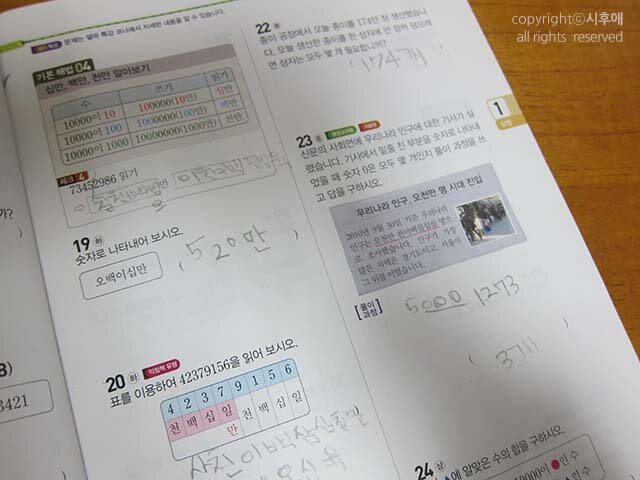 copyrightⓒ시후애
all rights reserved
문제는 셀파 특강 코너에서 자세한 내용을 알 수 있습니다.
기본 해법 04
십만, 백만, 천만 알아보기
수 쓰기 읽기
10000이 10 100000(10만) 십만
10000이 100 1000000(100만) 백만
10000이 1000 10000000(1000만) 천만
체크 4
73452986 읽기
19 하
숫자로 나타내어 보시오.
오백이십만
(520만)
20 하 익힘책 유형
표를 이용하여 42379156을 읽어 보시오.
4 2 3 7 9 1 5 6
천 백 십 일 천 백 십 일
만
사천이백삼십칠만
22
종이 공장에서 오늘 종이를 174만 장 생산했습니
다. 오늘 생산한 종이를 한 상자에 만 장씩 담으려
면 상자는 모두 몇 개 필요합니까?
174개
1
23
신문의 사회면에 우리나라 인구에 대한 기사가 실
렸습니다. 기사에서 밑줄 친 부분을 숫자로 나타내
었을 때 숫자 0은 모두 몇 개인지 풀이 과정을 쓰
고 답을 구하시오.
우리나라 인구, 오천만 명 시대 진입
2010년 9월 30일 기준 우리나라
로 조사됐습니다. 인구가 가장
많은 지역은 경기도이고, 서울이
그 뒤를 이었습니다.
[풀이 과정]
5000 1273
(3개)
24 상
에 알맞은 수의 합을 구하시오.
3421